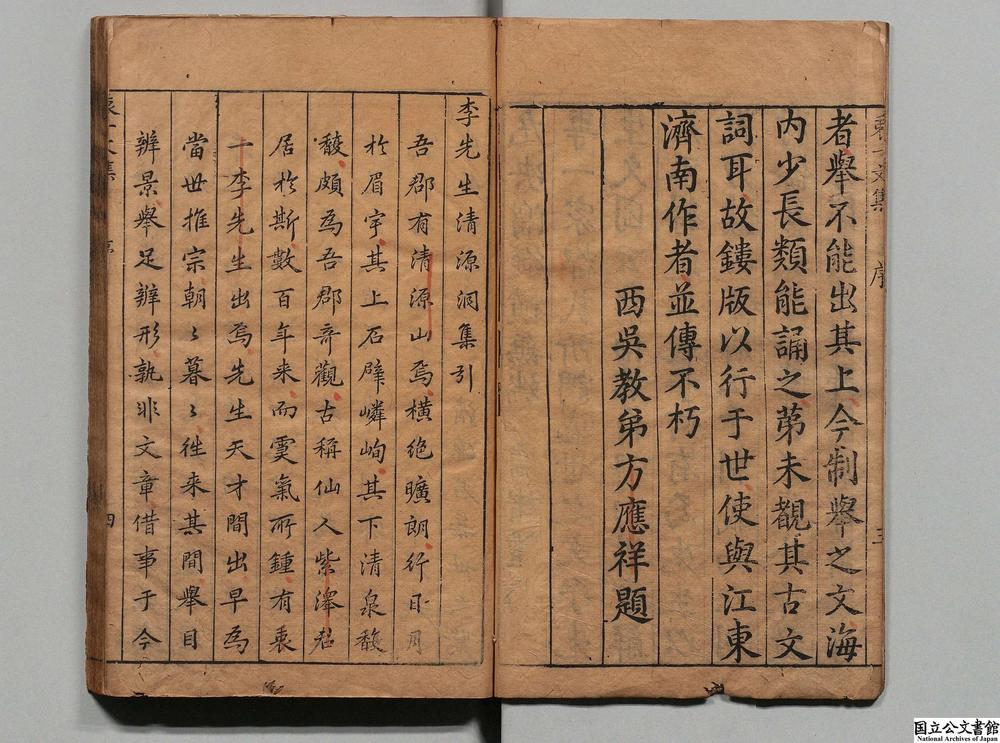 者舉不能出其上今制舉之文海
內少長類能誦之苐未覩其古文
詞耳故鏤版以行于世使與江東
濟南作者並傳不朽
西吳教弟方應祥題
李先生清源洞集引
吾郡有清源山焉橫絶曠朗行日月
於眉宇其上石壁嶙峋其下清泉馥
馥頗為吾郡奇觀古稱仙人紫澤君
居於斯數百年来而靈氣所鍾有衷
一李先生出焉先生天才間出早為
當世推宗朝〻暮〻徃来其間舉目
辨景舉足辦形孰非文章借事于今
四
国立公文書館
National Archives of Japan